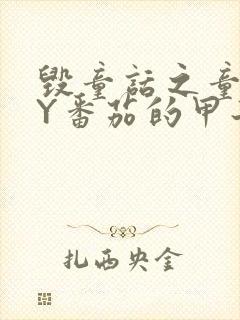 毁童话之童
Y番茄的甲
扎西央金